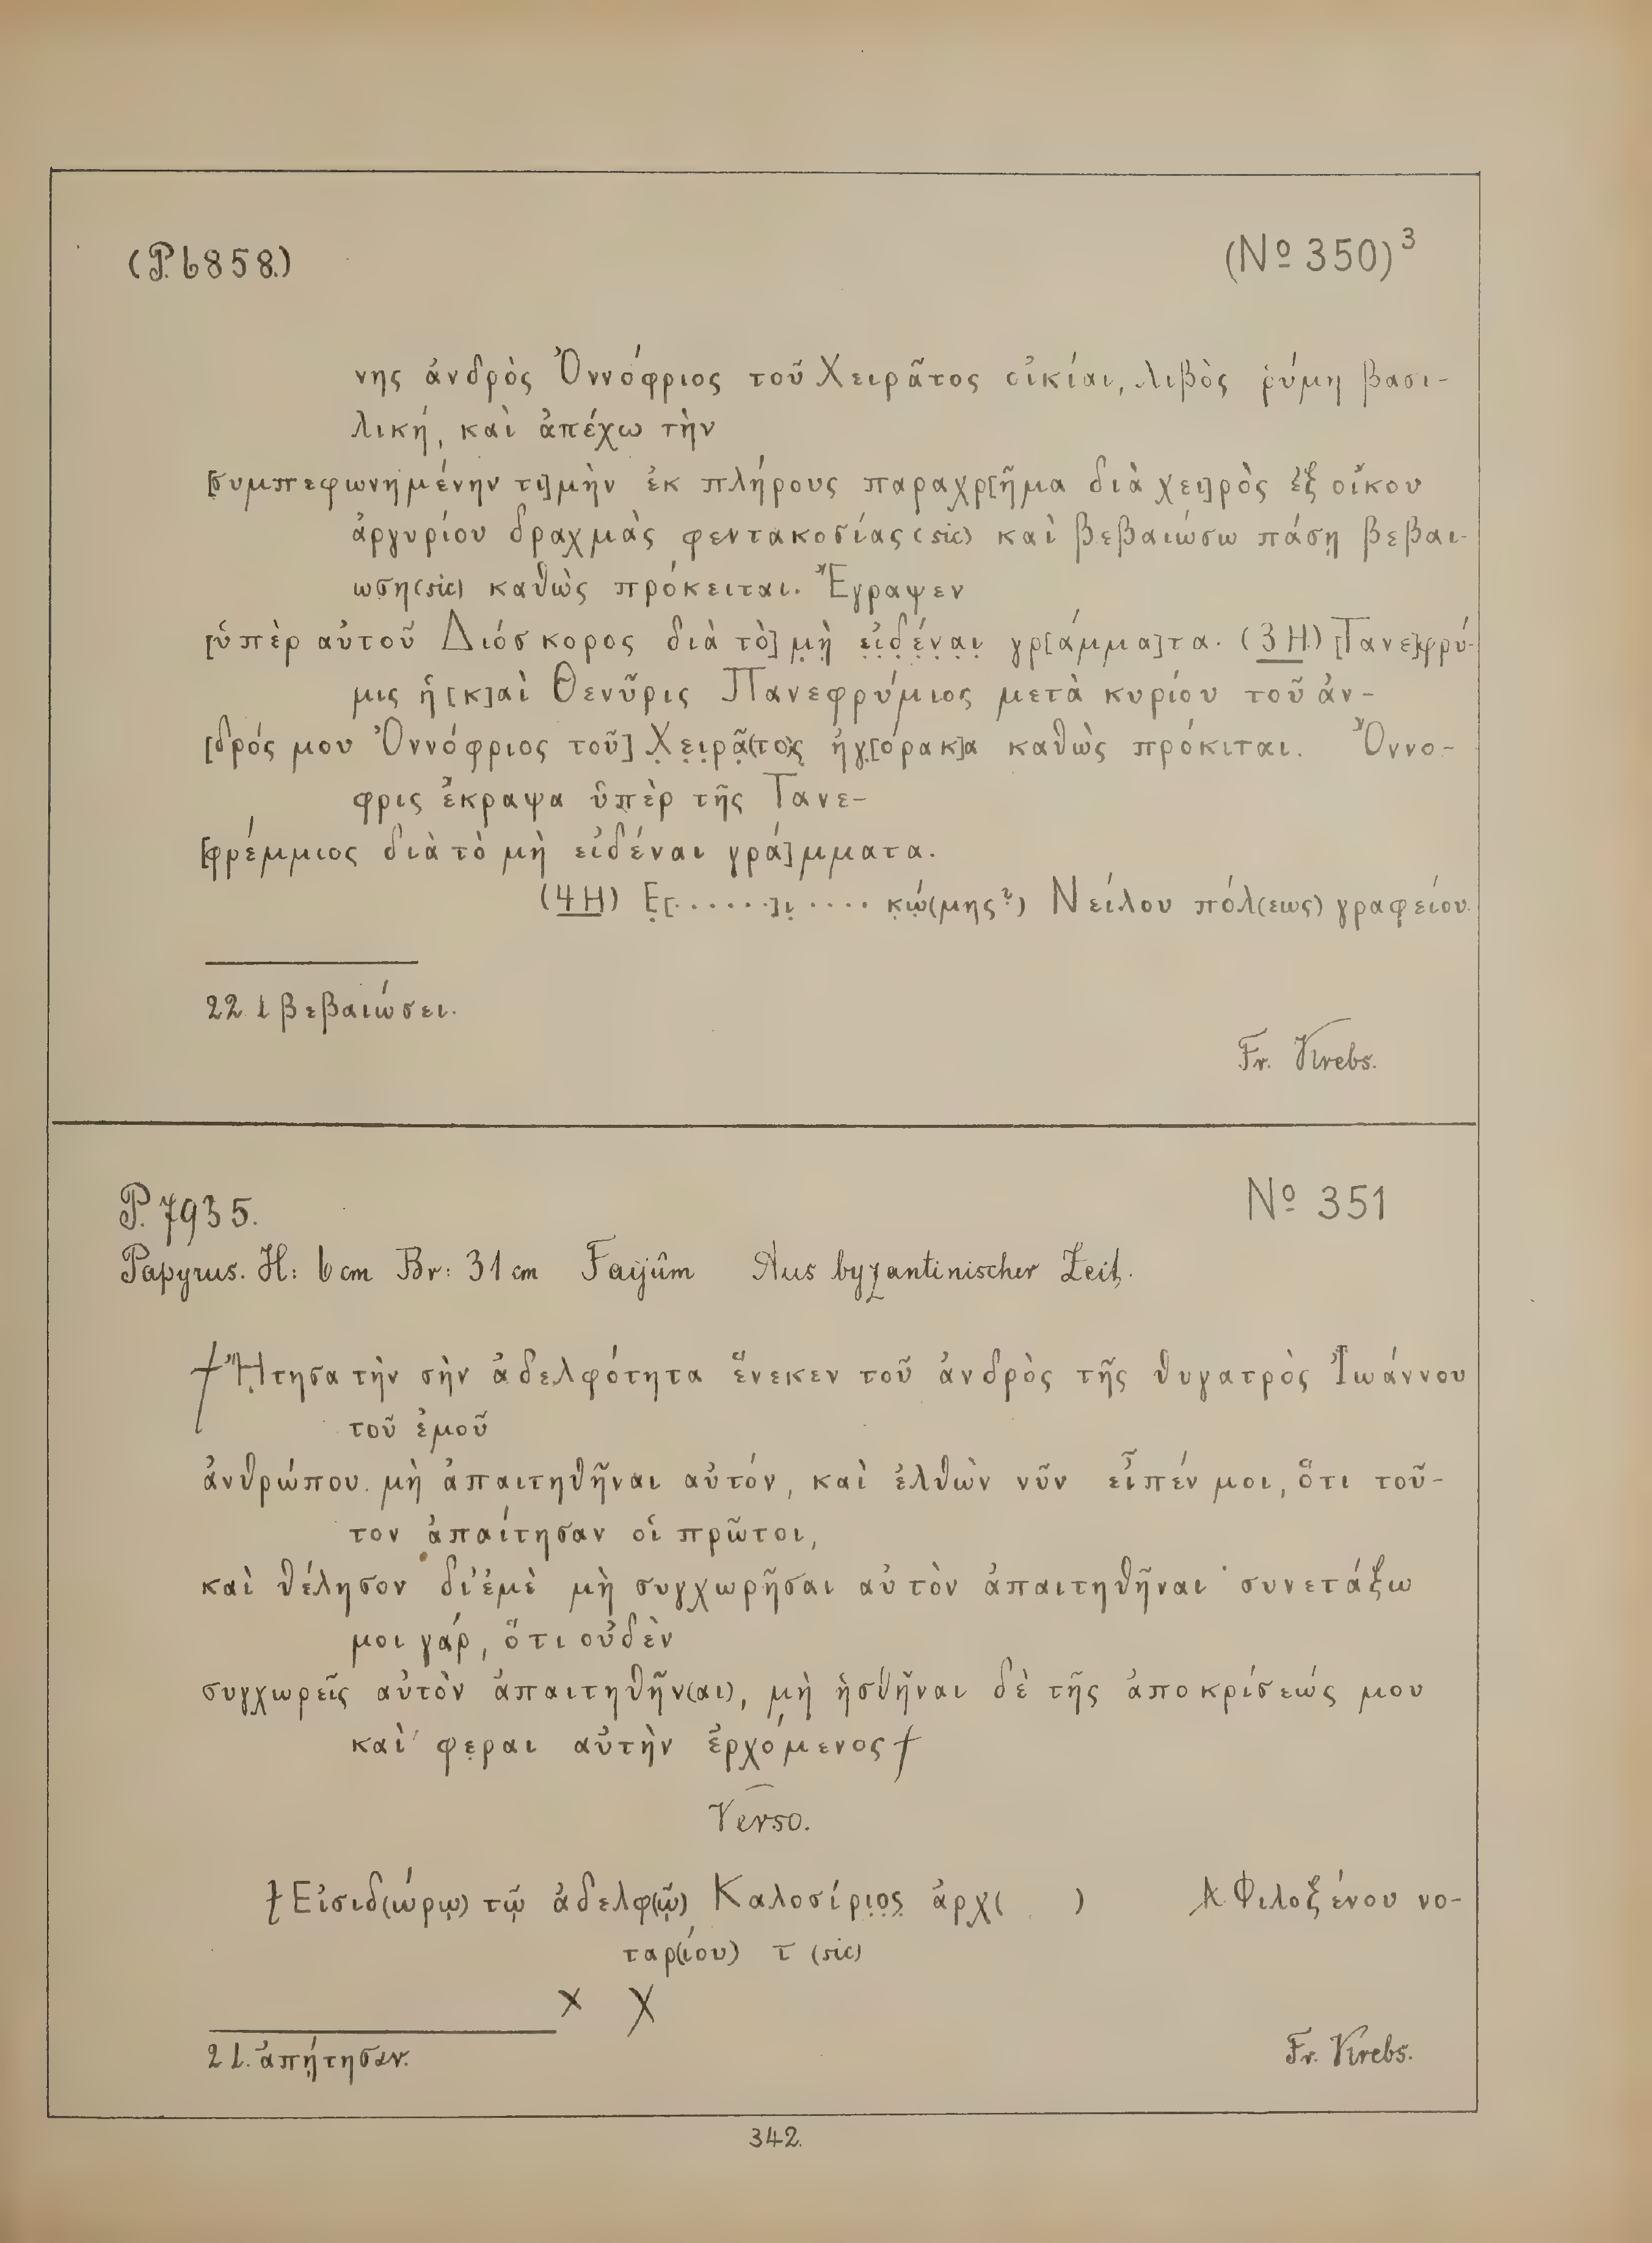 (P. 6858.) (Nº 350)³
νης ἀνδρὸς Ὀννόφριος τοῦ Χειρᾶτος οἰκίαι, λιβὸς ῥύμη βασι-
λική, καὶ ἀπέχω τὴν
[συμπεφωνημένην τι]μὴν ἐκ πλήρους παραχρ[ῆμα διὰ χει]ρὸς ἐξ οἴκου
ἀργυρίου δραχμὰς φεντακοσίας (sic) καὶ βεβαιώσω πάσῃ βεβαι-
ωση (sic) καθὼς πρόκειται. Ἔγραψεν
[ὑπὲρ αὐτοῦ Διόσκορος διὰ τὸ] μ̣ὴ̣ ε̣ἰ̣δ̣έ̣ν̣α̣ι̣ γρ[άμμα]τα. (3 H) [Τανε]φρύ-
μις ἡ [κ]αὶ Θενῦρις Πανεφρύμιος μετὰ κυρίου τοῦ ἀν-
[δρός μου Ὀννόφριος τοῦ] Χ̣ε̣ι̣ρ̣ᾶ̣(το)ς̣ ἠγ̣[όρακ]α καθὼς πρόκιται. Ὄννο-
φρις ἔκραψα ὑπὲρ τῆς Τανε-
[φρέμμιος διὰ τὸ μὴ εἰδέναι γρά]μματα.
(4 H) Ε̣[· · · · · ·]ι̣ · · · · κ̣ώ̣(μης?) Νείλου πόλ(εως) γραφείου.
22 l βεβαιώσει.
Fr. Krebs.
P. 7935. Nº 351
Papyrus. H: 6 cm Br: 31 cm Faijûm Aus byzantinischer Zeit.
† Ἤ̣τησα τὴν σὴν ἀδελφότητα ἕνεκεν τοῦ ἀνδρὸς τῆς θυγατρὸς Ἰωάννου
τοῦ ἐμοῦ
ἀνθρώπου μὴ ἀπαιτηθῆναι αὐτόν, καὶ ἐλθὼν νῦν εἶπέν μοι, ὅτι τοῦ-
τον ἀπαίτησαν οἱ πρῶτοι,
καὶ θέλησον δι' ἐμὲ μὴ συγχωρῆσαι αὐτὸν ἀπαιτηθῆναι · συνετάξω
μοι γάρ, ὅτι οὐδὲν
συγχωρεῖς αὐτὸν ἀπαιτηθῆν(αι), μὴ ἡσθῆναι δὲ τῆς ἀποκρίσεώς μου
καὶ φεραι αὐτὴν ἐρχόμενος †
Verso.
† Εἰσιδ(ώρῳ) τῷ ἀδελφ(ῷ) Καλοσίρι̣ο̣ς̣ ἀρχ( ) Φιλοξένου νο-
ταρ(ίου) τ (sic)
x X
2 l. ἀπῄτησαν.
Fr. Krebs.
342.